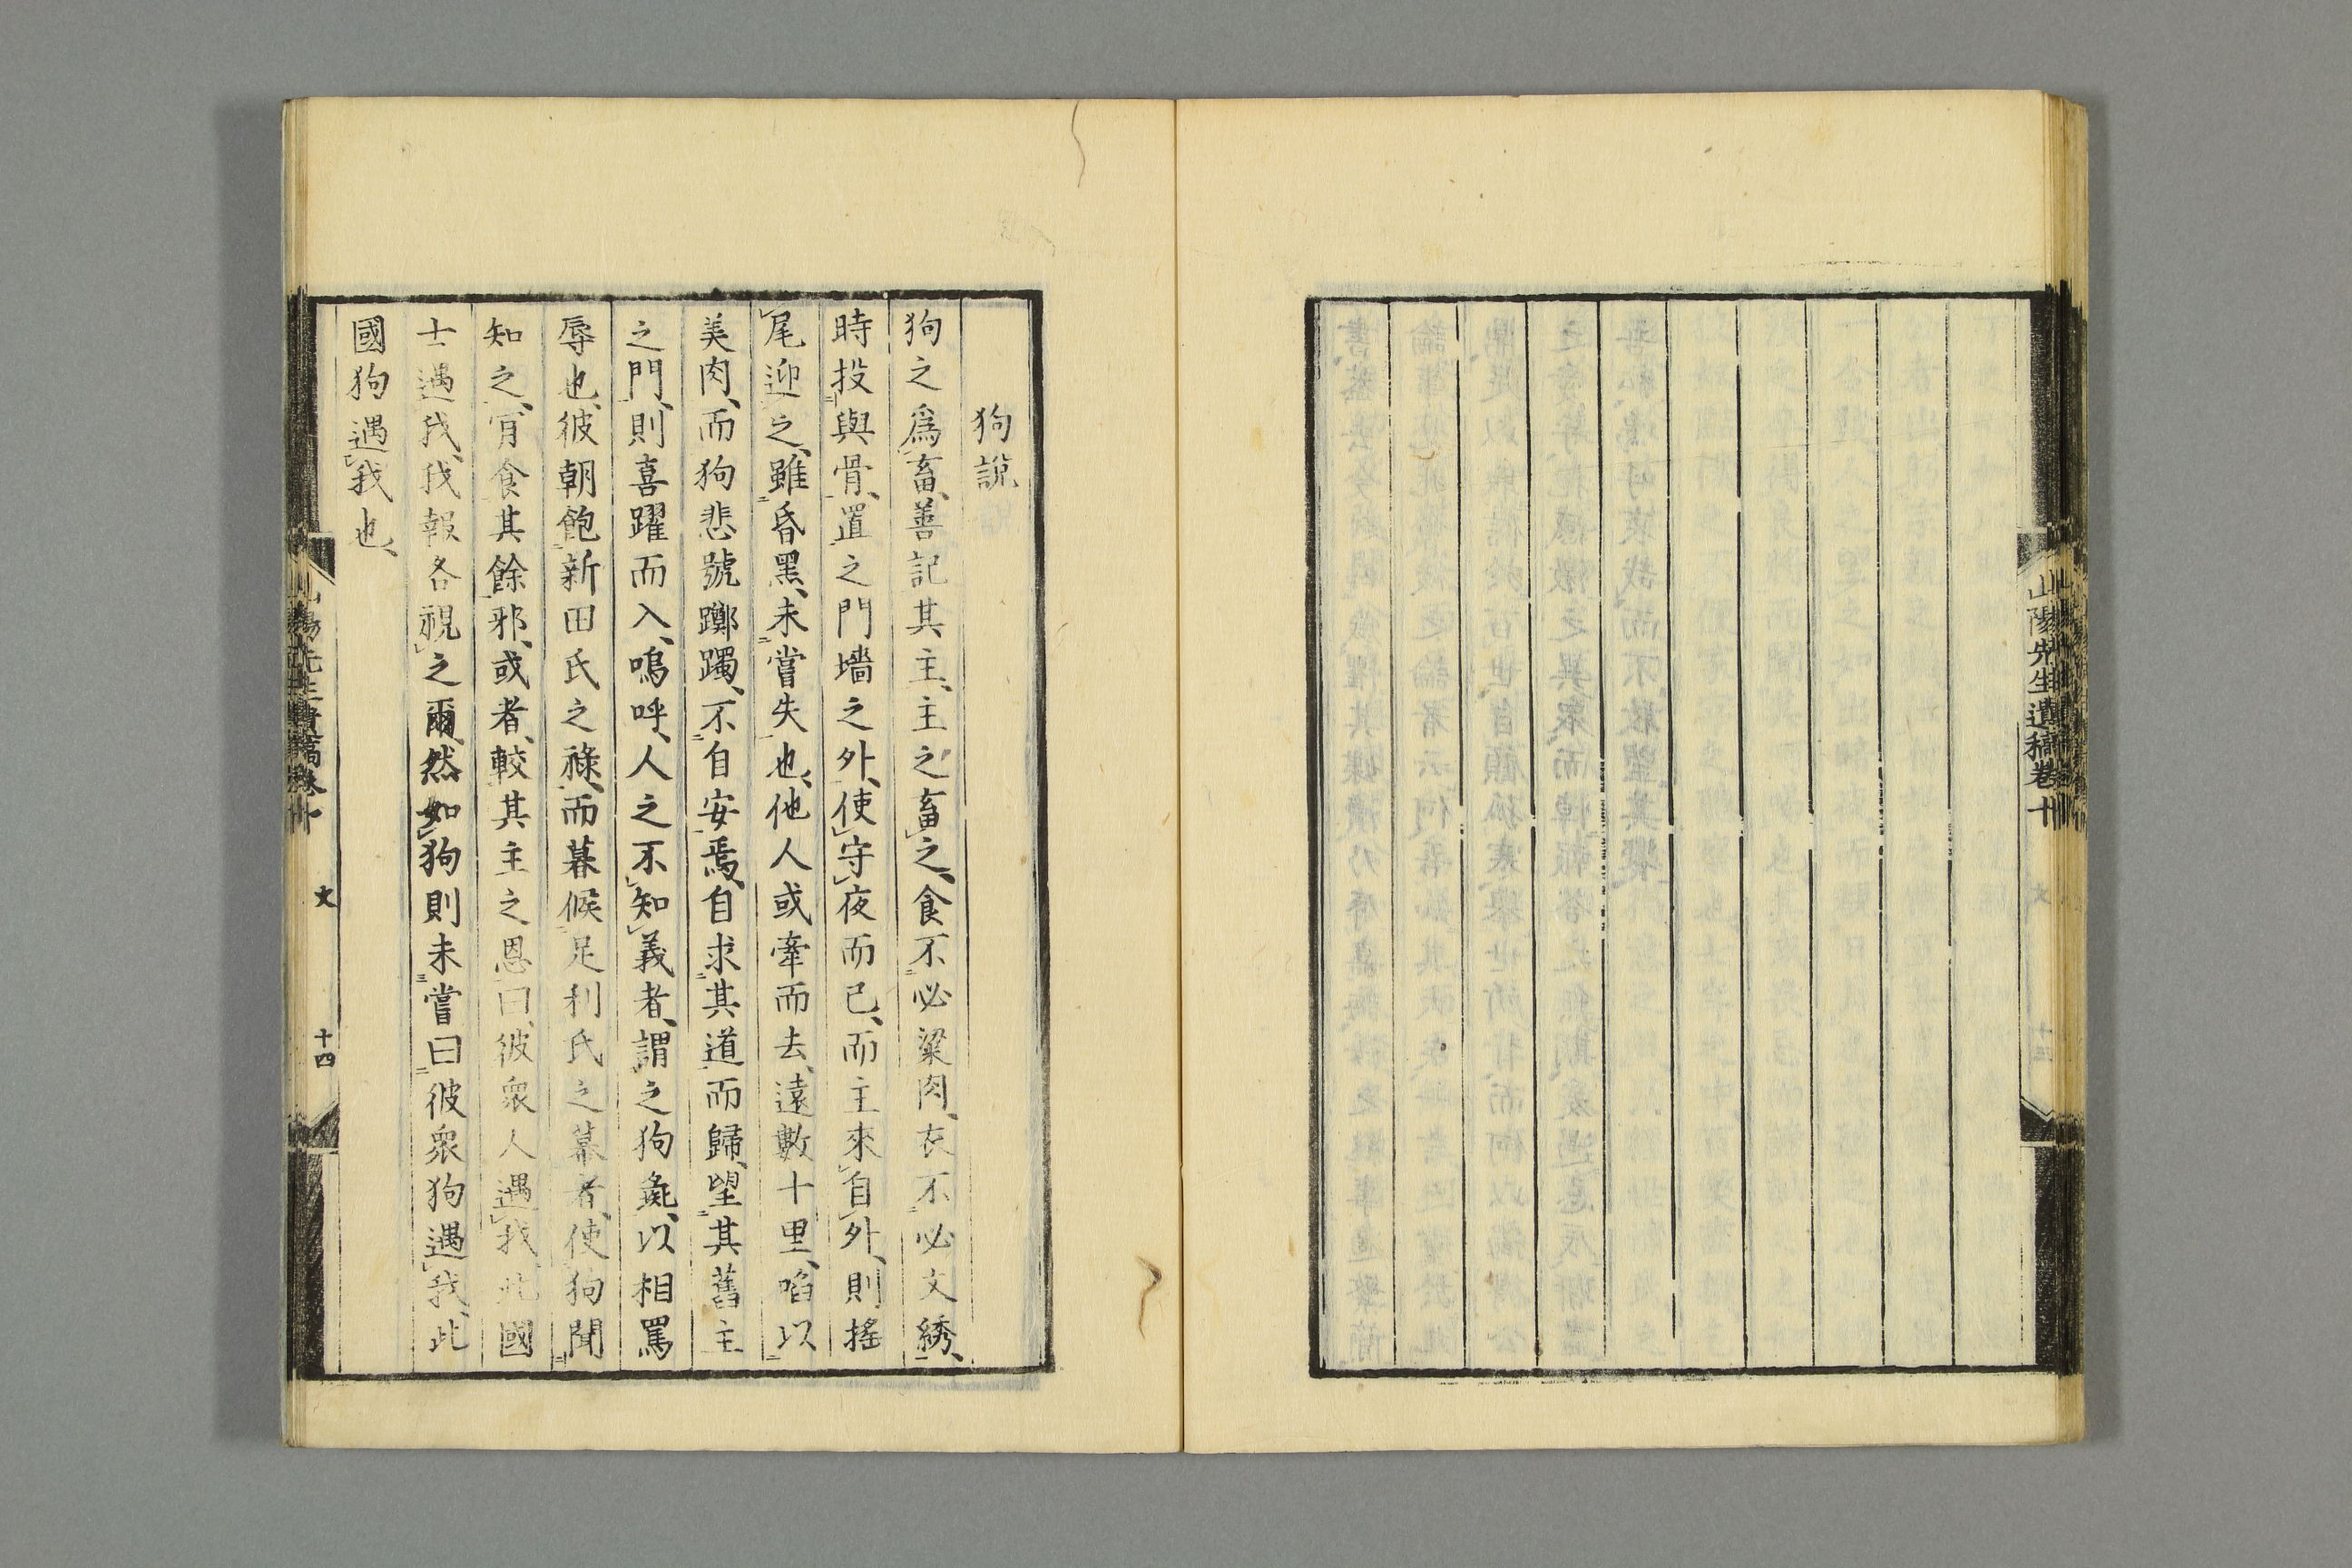 山陽先生遺稿卷十
狗說
狗之爲畜、善記其主、主之畜之、食不必粱肉、衣不必文綉、
時投與骨、置之門墻之外、使守夜而已、而主來自外、則搖
尾迎之、雖昏黑、未嘗失也、他人或牽而去、遠數十里、啗以
美肉、而狗悲號躑躅、不自安焉、自求其道而歸、望其舊主
之門、則喜躍而入、嗚呼、人之不知義者、謂之狗彘、以相罵
辱也、彼朝飽新田氏之祿、而暮候足利氏之幕者、使狗聞
知之、肎食其餘邪、或者、較其主之恩曰、彼衆人遇我、此國
士遇我、我報各視之爾、然如狗則未嘗曰彼衆狗遇我、此
國狗遇我也、
山陽先生遺稿卷十
文
十四